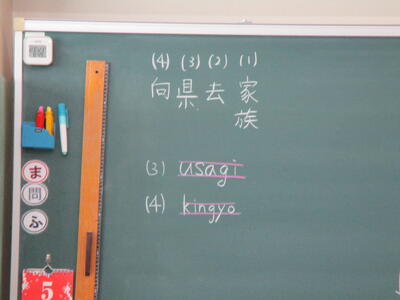 (4) (3) (2) (1)
向 県 去 家族
(3) usagi
(4) kingyo
ま
問
ふ
5